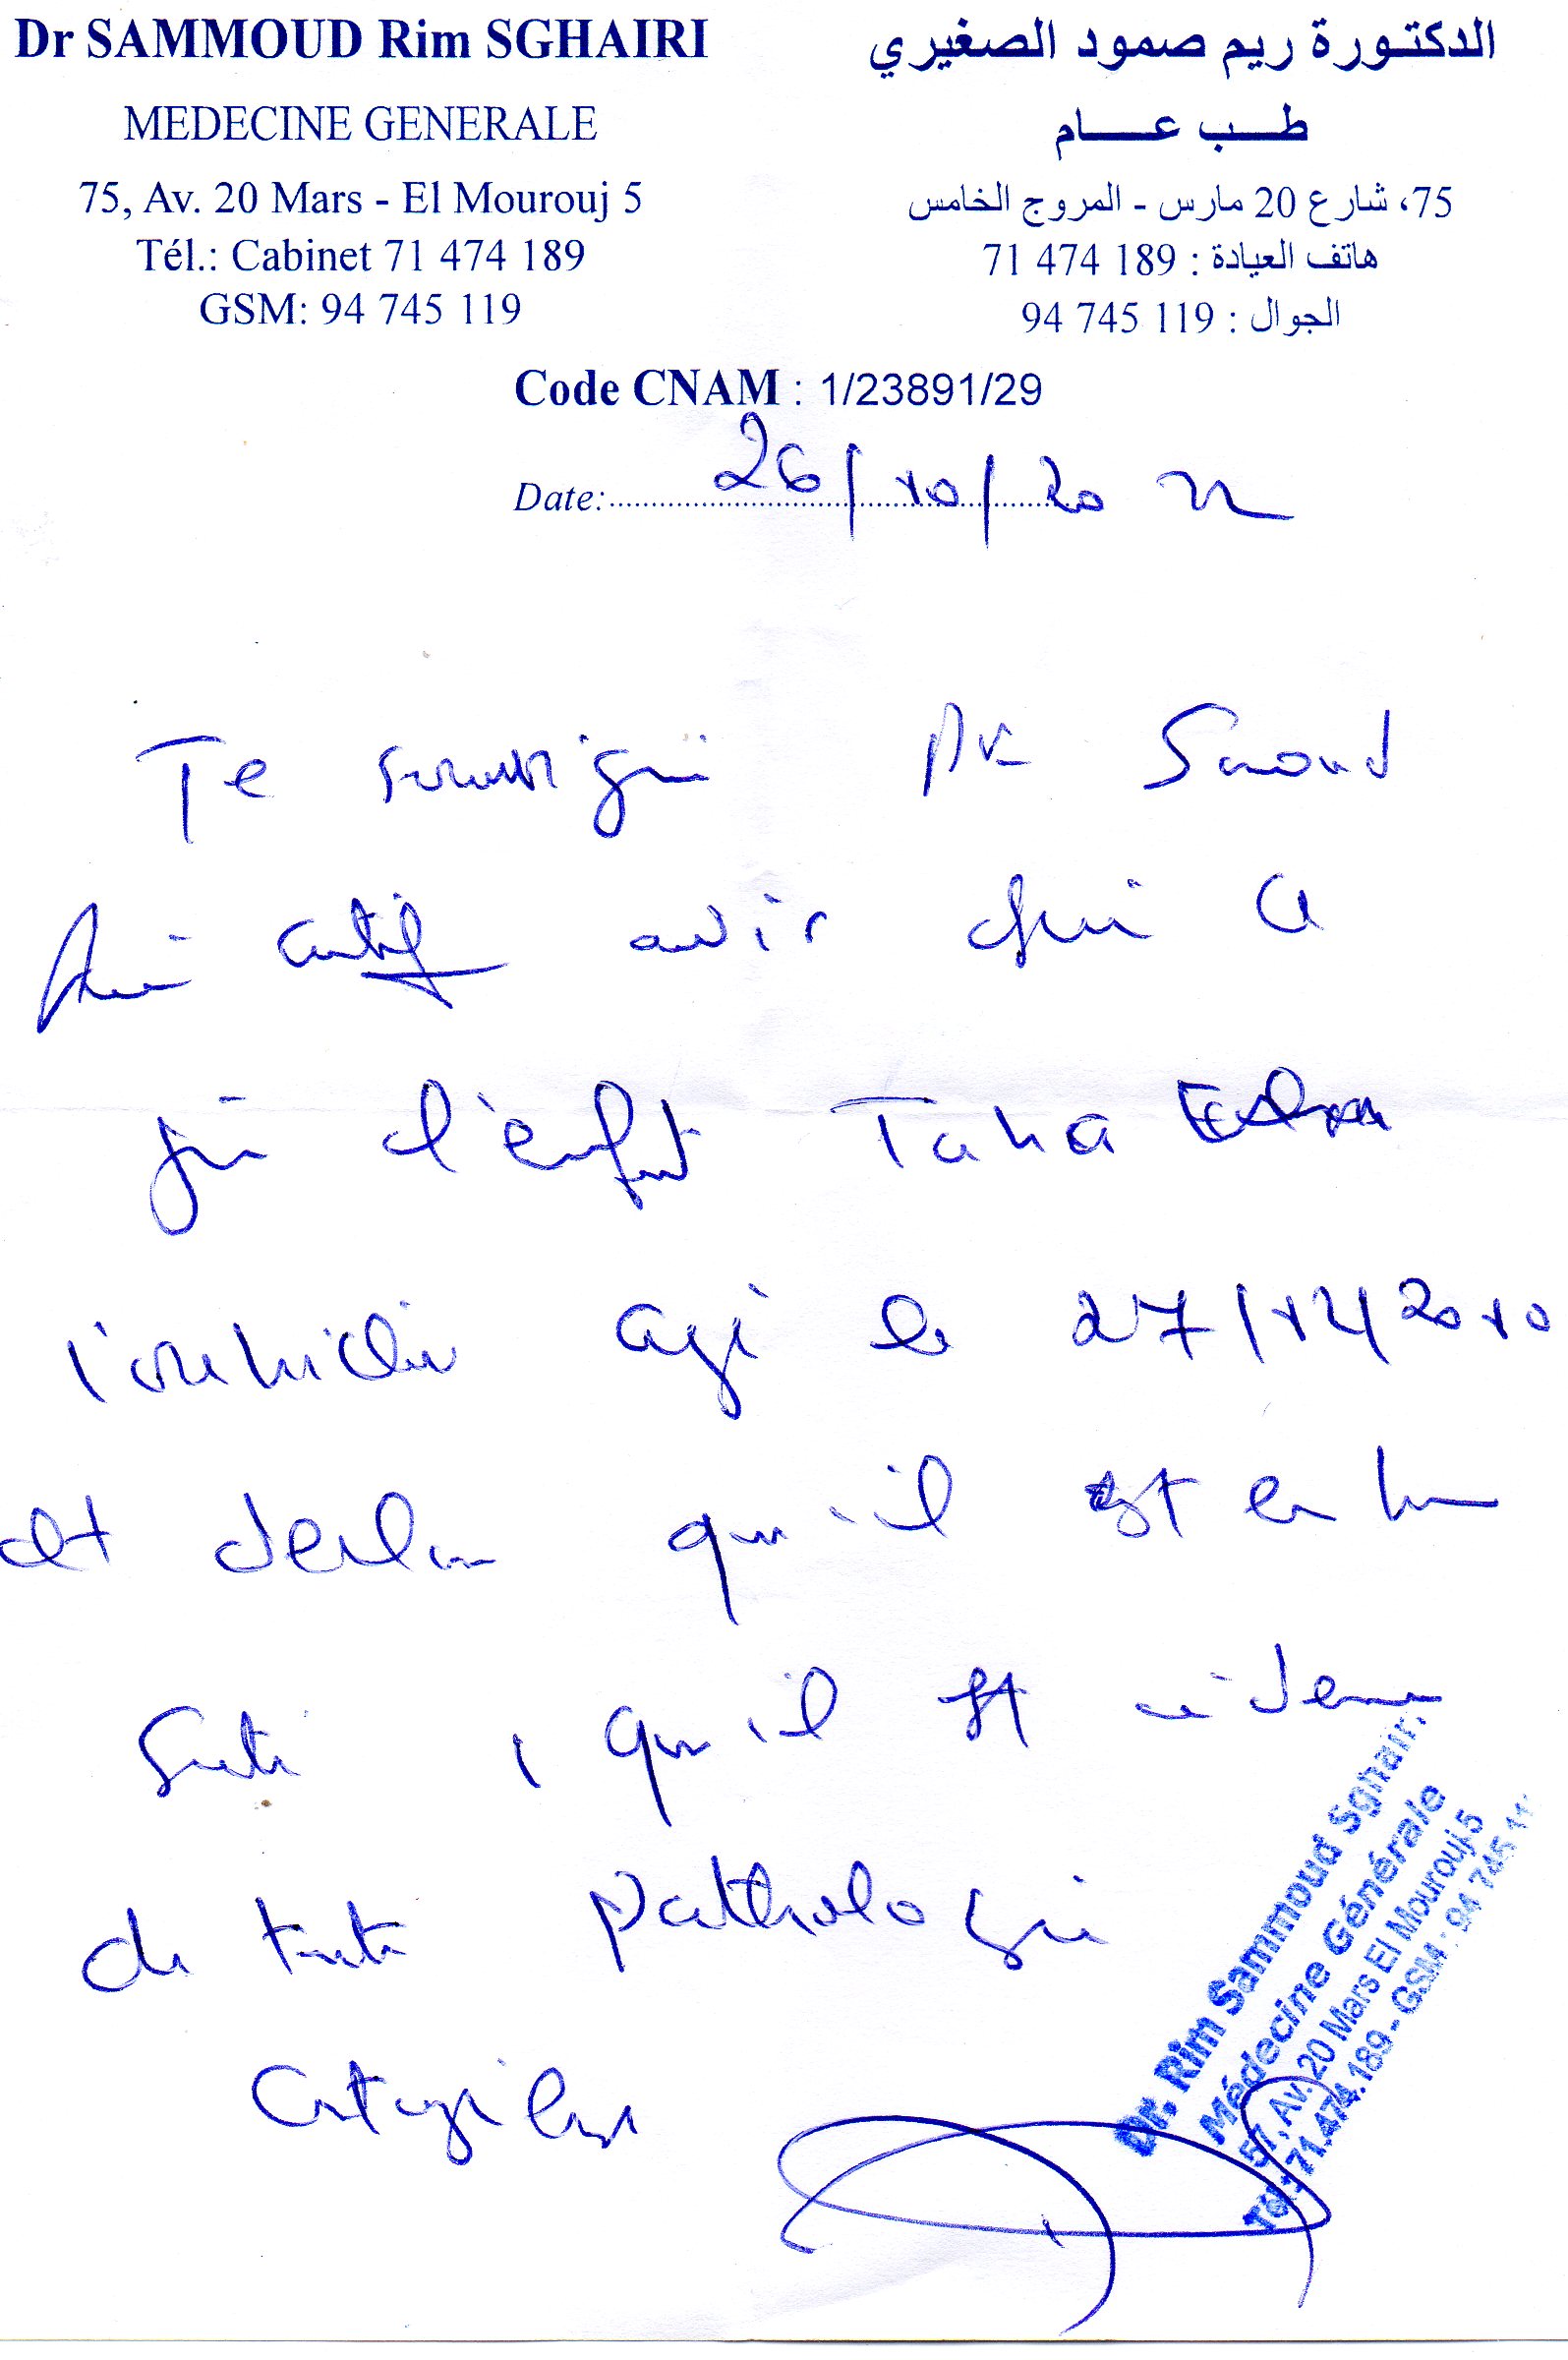 Dr SAMMOUD Rim SGHAIRI
MEDECINE GENERALE
75, Av. 20 Mars - El Mourouj 5
Tél.: Cabinet 71 474 189
GSM: 94 745 119
الدكتورة ريم صمود الصغيري
طب عام
75، شارع 20 مارس - المروج الخامس
هاتف العيادة : 189 474 71
الجوال : 119 745 94
Code CNAM : 1/23891/29
Date: 26/10/2022
Je soussigné Dr Samoud
Rim certifie avoir examiné ce
jour l'enfant Taha
agé le 27/12/2010
et déclare qu'il est en bonne
santé, qu'il est indemne
de toute pathologie
contagieuse
Dr. Rim Sammoud Sghairi
Médecine Générale
57, Av. 20 Mars El Mourouj 5
Tél : 71.474.189 - GSM : 94 745 11